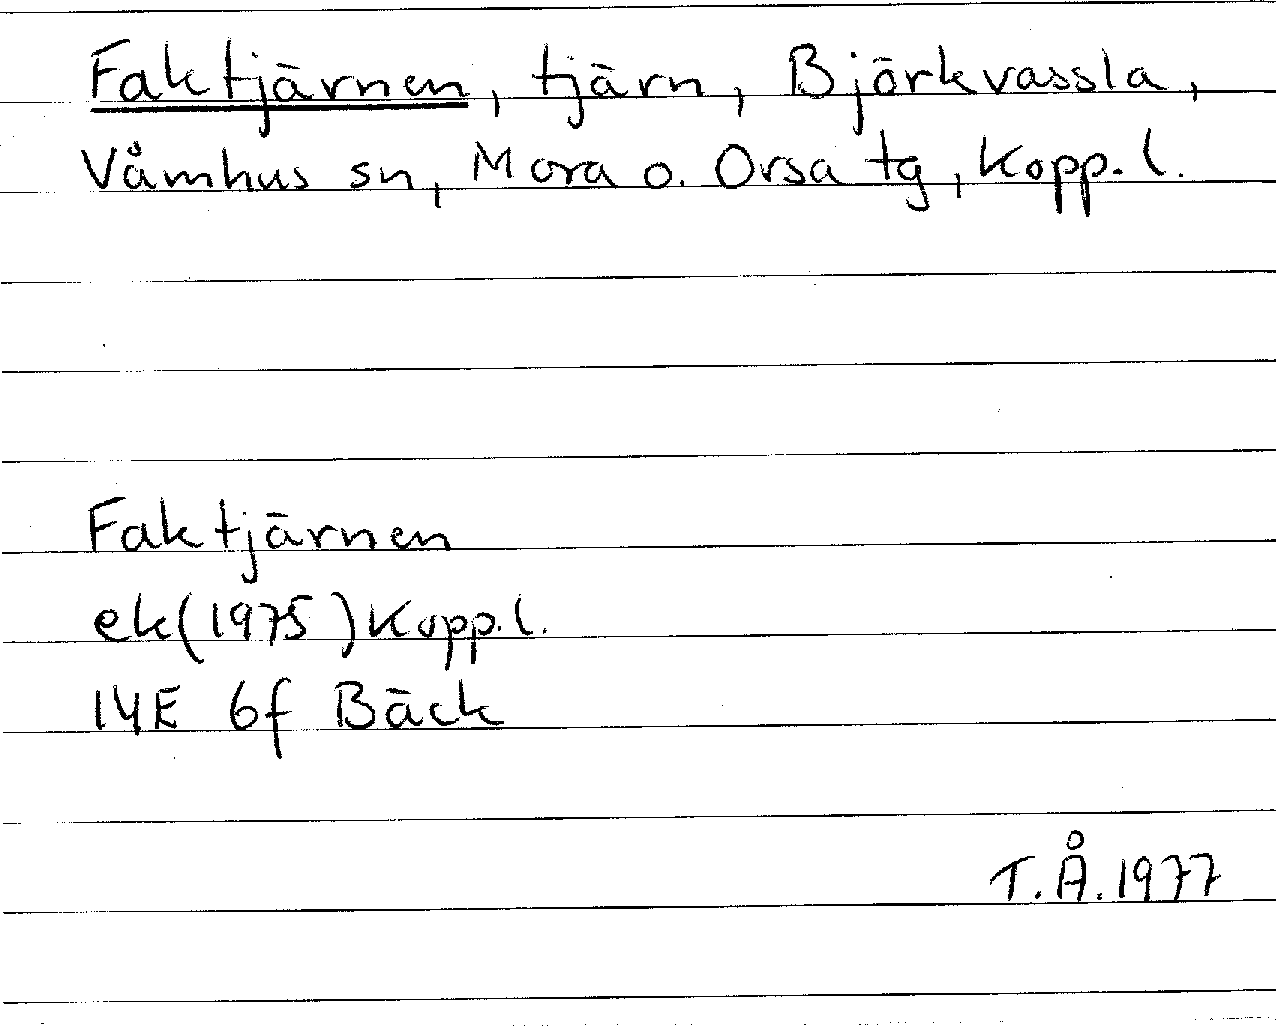 Faktjärnen, tjärn, Björkvassla,
Våmhus sn, Mora o. Orsa tg, Kopp. l.
Faktjärnen
ek(1975) Kopp. l.
14E 6f Bäck
T.Å. 1977